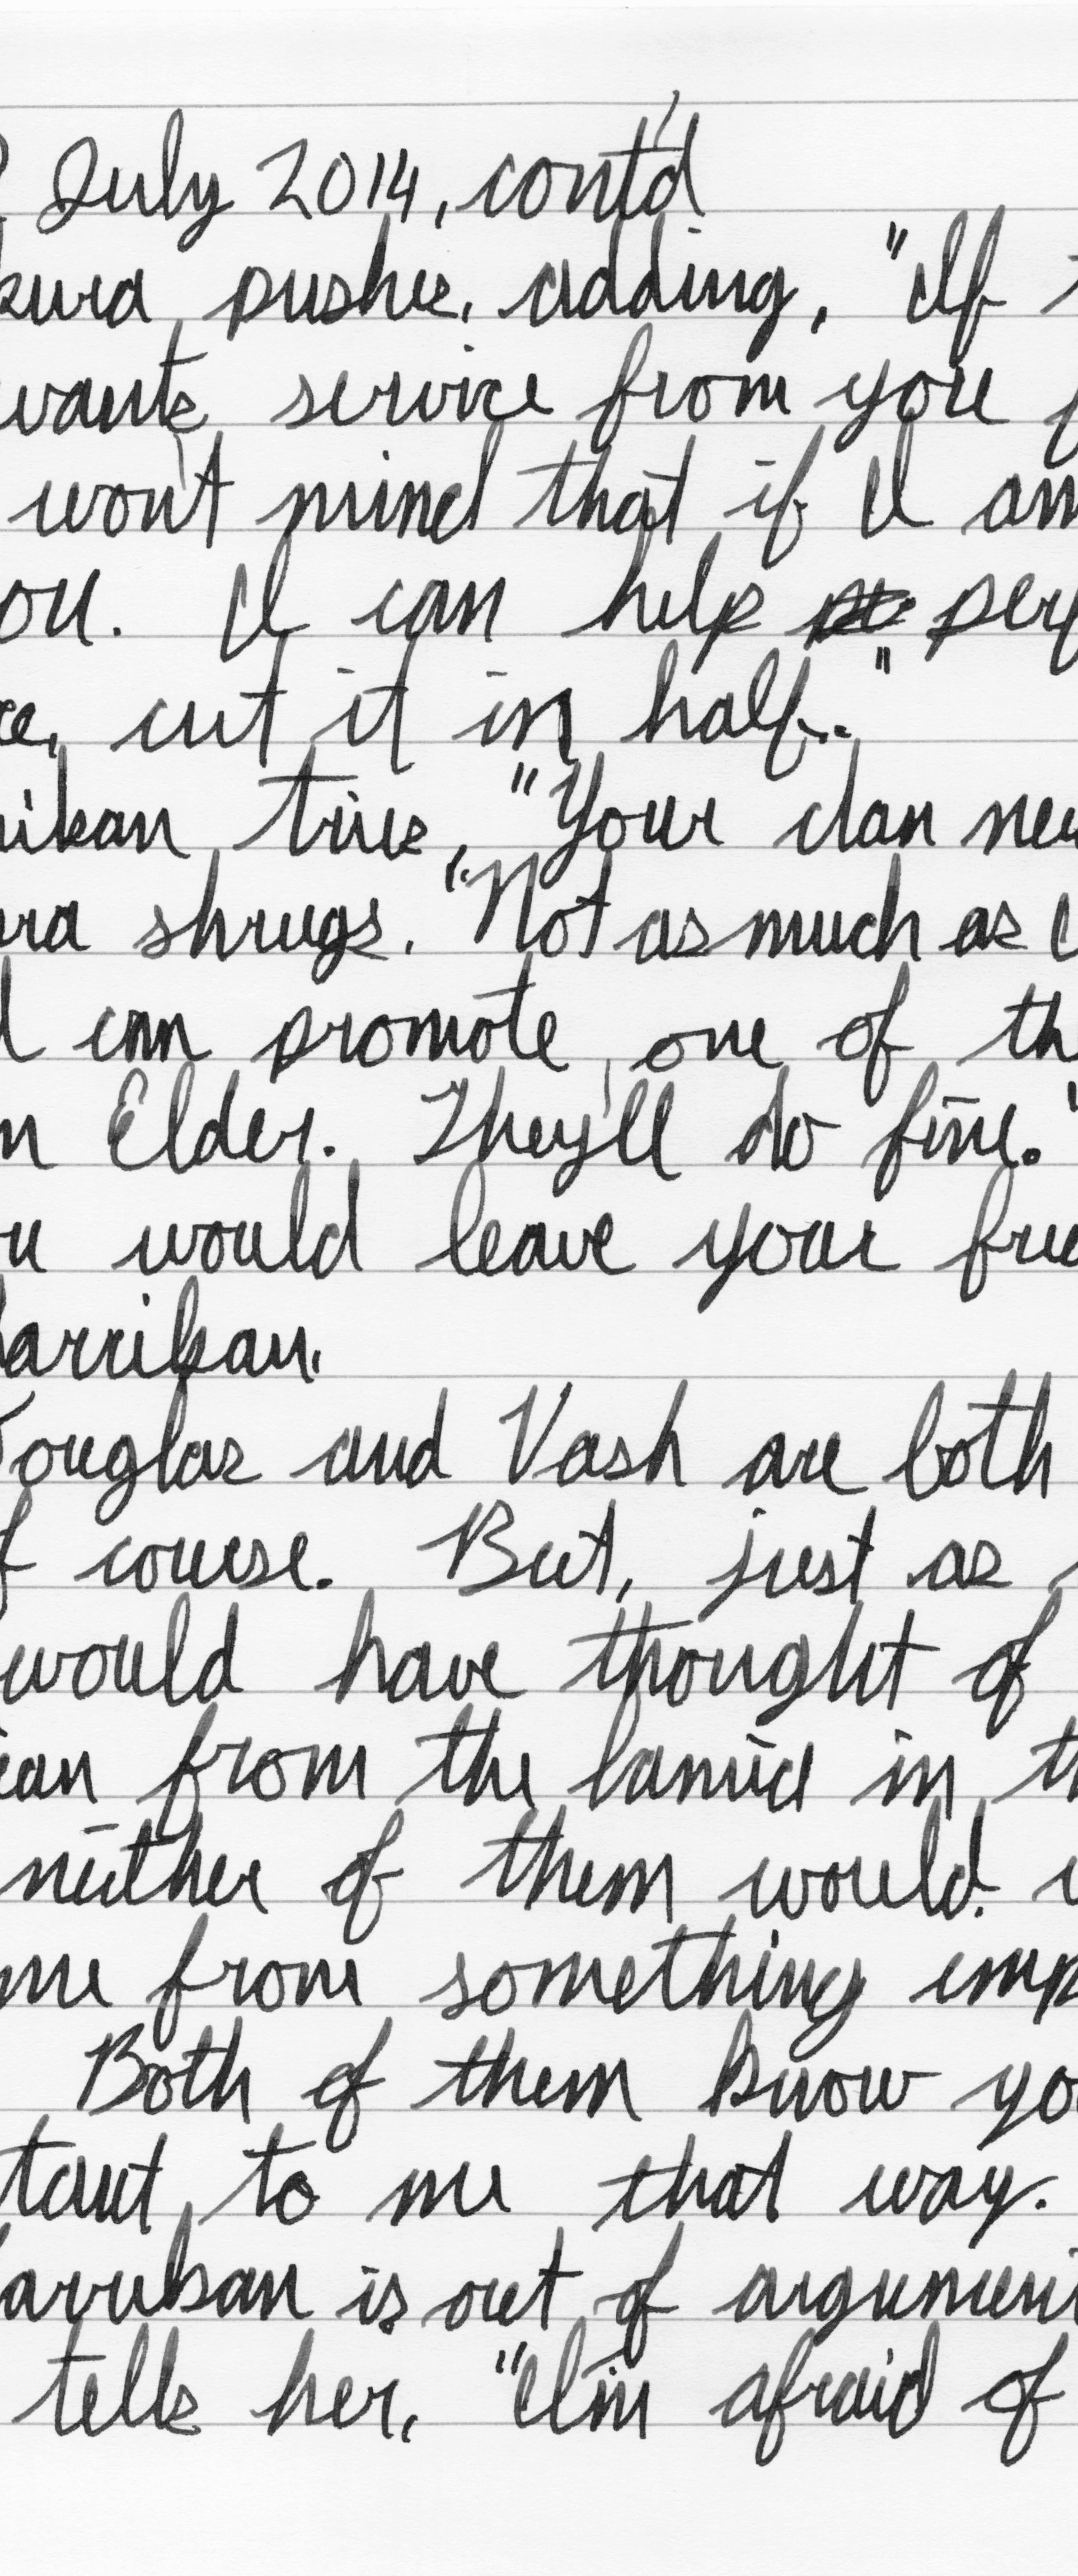 July 2014, cont'd
pushes, adding, "If
wants service from you
won't mind that if I am
ou. I can help per
ce, cut it in half."
rikan tries, "Your clan nee
ra shrugs. "Not as much as
I can promote one of th
n Elder. They'll do fine."
u would leave your frie
arrikan.
Douglas and Vash are both
f course. But, just as
would have thought of
ean from the lamia in th
neither of them would
me from something imp
Both of them know yo
tant to me that way.
arrikan is out of argument
tells her, "I'm afraid of